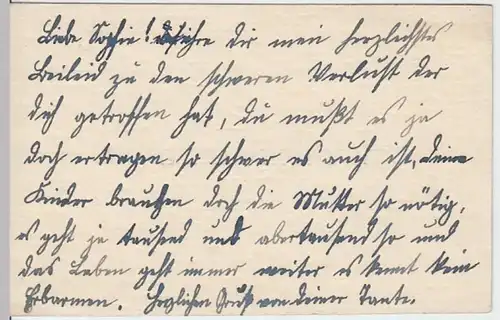 Liebe Sophie! Führe dir mein herzlichstes
Beileid zu den schweren Verlust der
dich getroffen hat, du mußt es ja
doch ertragen so schwer es auch ist, deine
Kinder brauchen doch die Mutter so nötig,
es geht ja tausend und abertausend so und
das Leben geht immer weiter es kennt kein
Erbarmen. Herzlichen Gruß von deiner Tante.